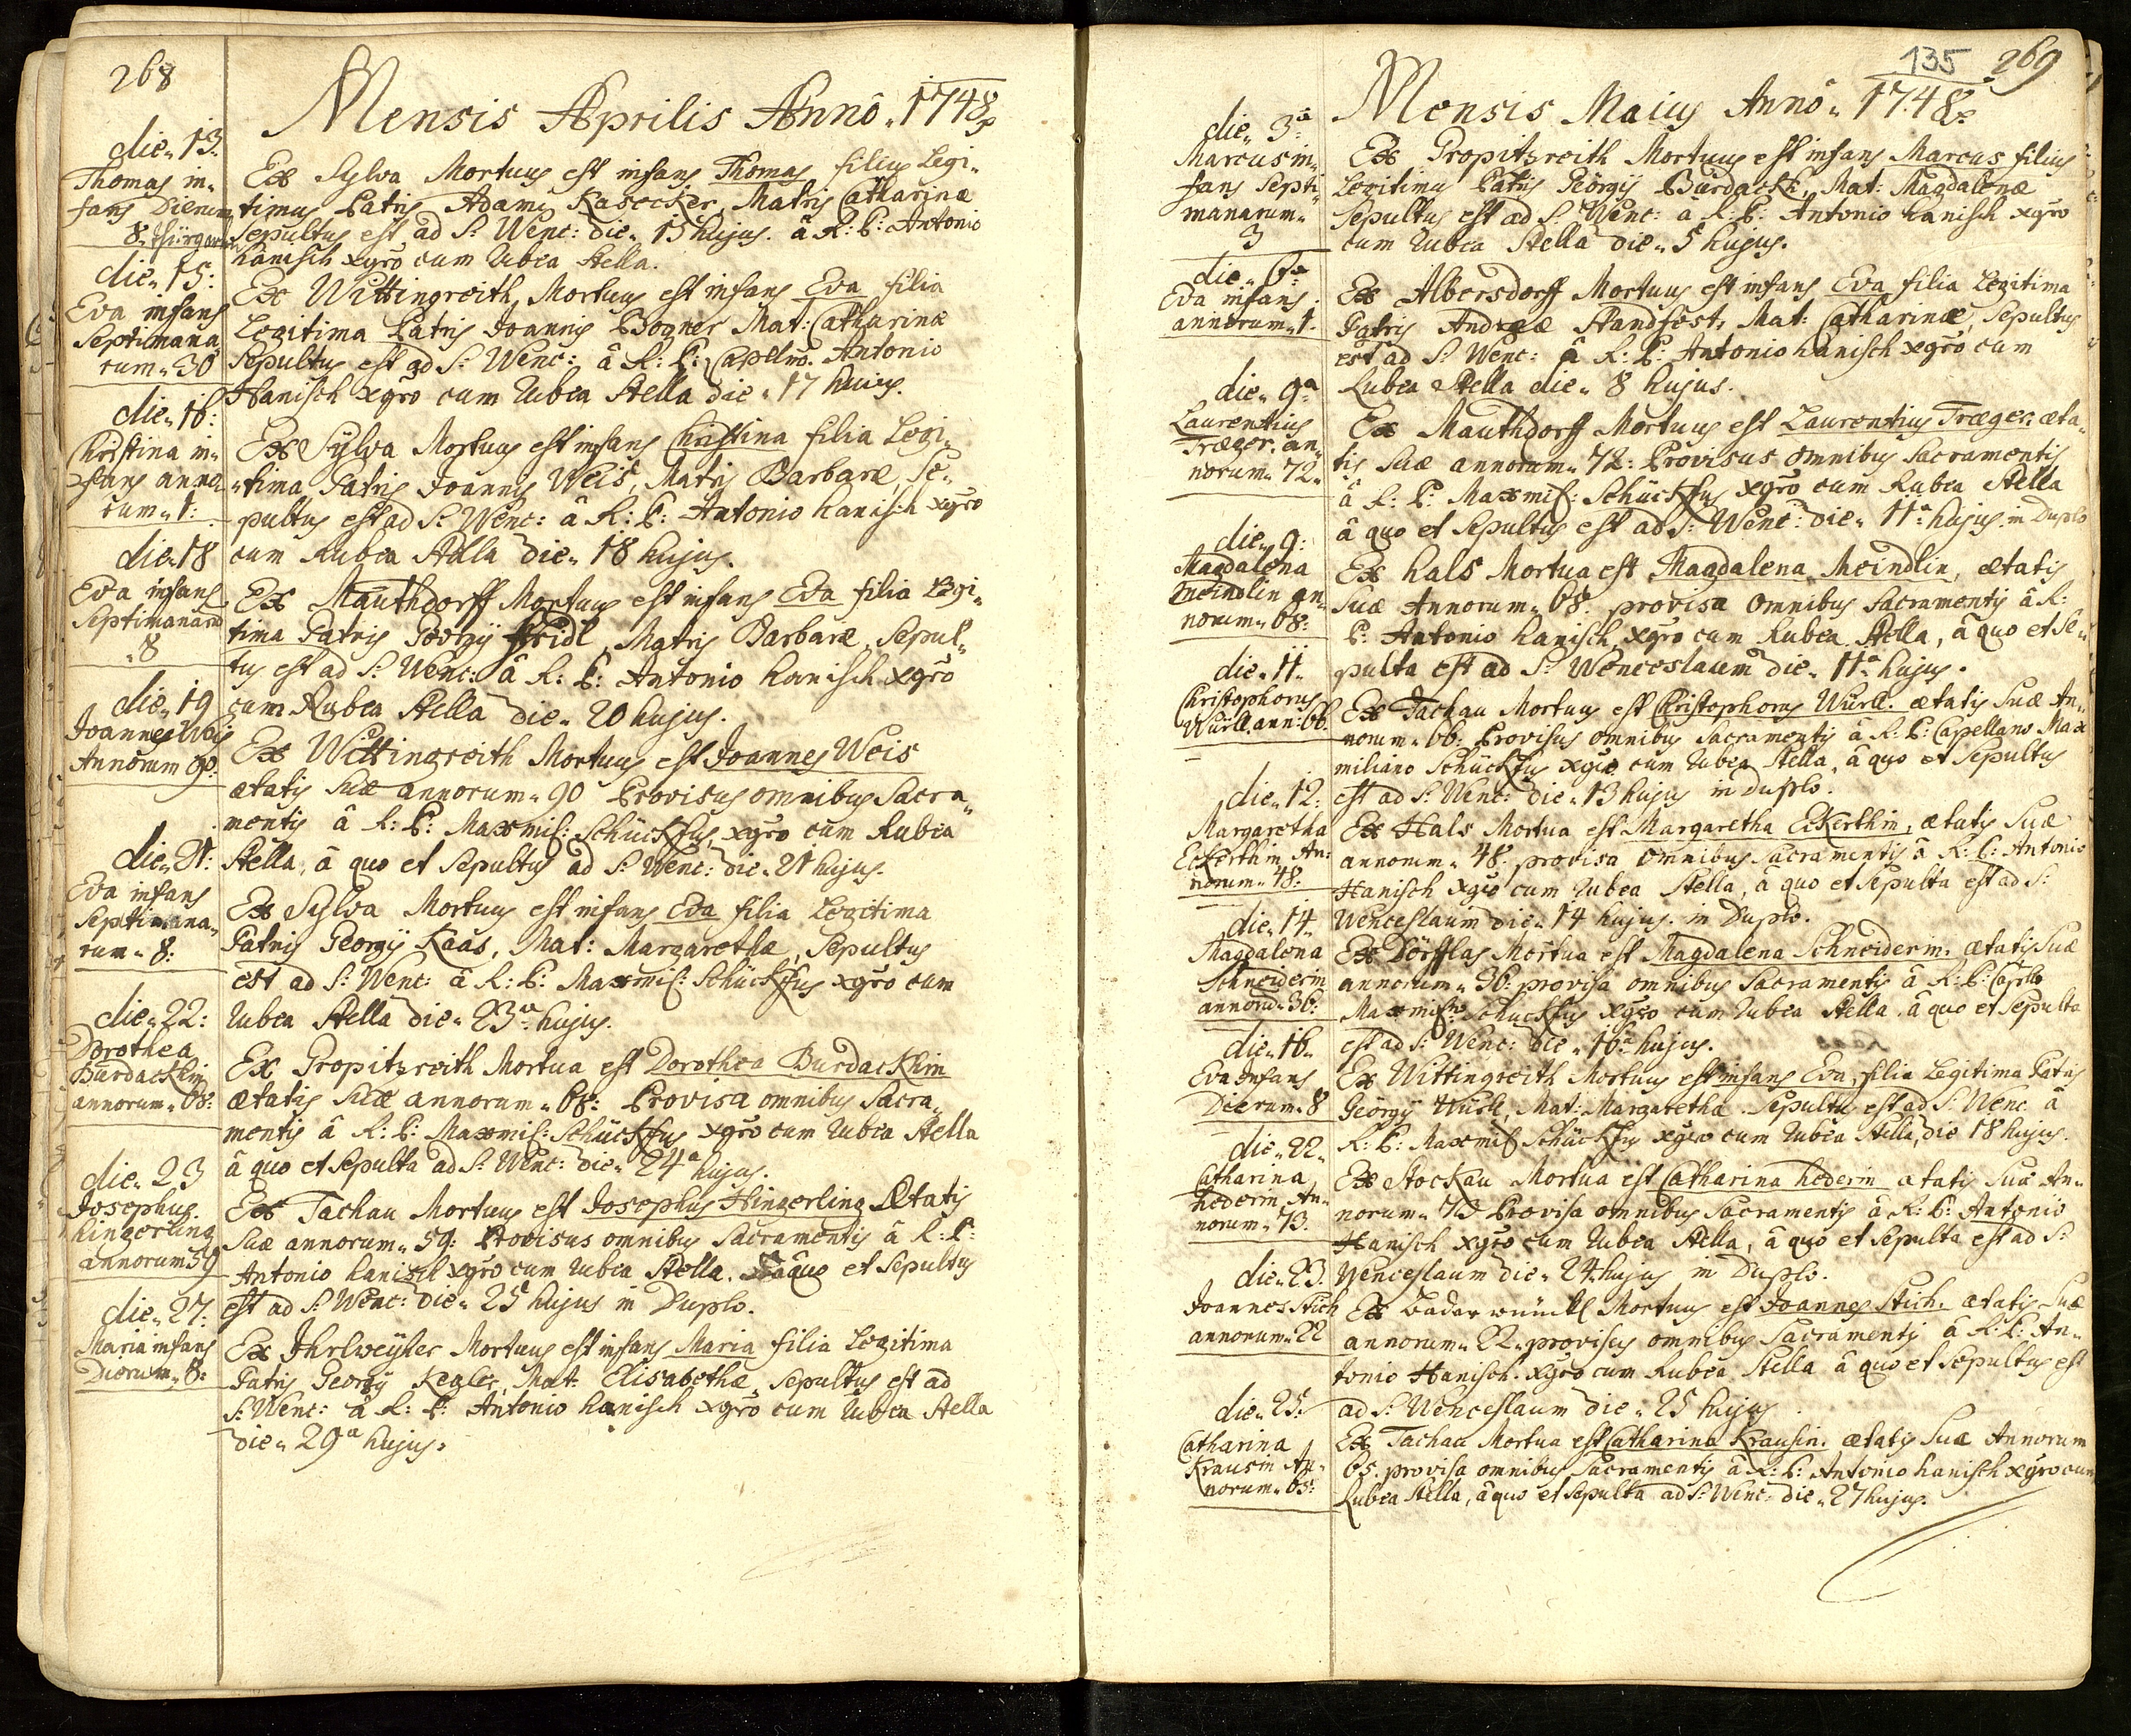 268
Mensis Aprilis Annô „ 1748
die„ 13.
Thomas in„
fans Dierum
8.
Ex Sylva Mortuus est infans Thomas filius Legi„
timus Patris Adami Kasecker, Matris Catharinæ
Sepultus est ad S: Wenc: die„ 15 hujus. â R: P: Antonio
hanisch xgrô cum Rubea Stella.
die„ 15:
Eva infans
Septimana
rum„ 30
Ex Wittingreith, Mortuus est infans Eva filia
Legitima Patris Joannis Bogner Mat: Catharinæ
Sepultus est ad S: Wenc: â R: P: Capellno. Antonio
Hanisch xgrô cum Rubea Stella die„ 17 hujus.
die„ 16:
Christina in„
fans anno
rum„ 1:
Ex Sylva Mortuus est infans Christina filia Legi„
„tima Patris Joannis Weis, Matris Barbaræ, Se„
pultus est ad S: Wenc: â R: P: Antonio hanisch xgrô
cum Rubea Stella die„ 18 hujus.
die„ 18
Eva infans
Septimanarũ
„8
Ex Mauthdorff Mortuus est infans Eva filia Legi„
tima Patris Georgij Fridl, Matris Barbaræ, Sepul„
tus est ad S: Wenc: â R: P: Antonio hanisch xgrô
cum Rubea Stella die„ 20 hujus.
die„ 19
Joannes Weis
Annorum 90:
Ex Wittingreith Mortuus est Joannes Weis
ætatis Suæ annorum„ 90 Provisus omnibus Sacra„
mentis â R: P: Maxmil: Schückfus, xgrô cum Rubea
Stella, â quo et Sepultus ad S: Wenc: die„ 21 hujus.
die„ 21:
Eva infans
Septimana„
rum„ 8:
Ex Sylva Mortuus est infans Eva filia Legitima
Patris Georgij Kaas, Mat: Margarethæ, Sepultus
est ad S: Wenc: â R: P: Maxmil: Schückfus xgrô cum
Rubea Stella die„ 23a hujus.
die„ 22:
Dorothea
Burdackhin
annorum„ 68:
Ex Gropitzreith Mortua est Dorothea Burdackhin
ætatis Suæ annorum„ 68: Provisa omnibus Sacra„
mentis â R: P: Maxmil: Schückfus xgrô cum Rubea Stella
â quo et Sepulta ad S: Wenc: die„ 24a hujus.
die„ 23
Josephus
Hingerling
annorum 59
Ex Tachau Mortuus est Josephus Hingerling Ætatis
Suæ annorum„ 59: Provisus omnibus Sacramentis â R: P:
Antonio hanisch xgrô cum Rubea Stella. â quo et Sepultus
est ad S: Wenc: die„ 25 hujus in Duplo.
die„ 27:
Maria infans
Dierum„ 8:
Ex Ihrlweyher Mortuus est infans Maria filia Legitima
Patris Georgij Kegler, Mat: Elisabethæ, Sepultus est ad
S: Wenc: â R: P: Antonio hanisch xgrô cum Rubea Stella
die„ 29a hujus.
135 269
Mensis Maius Annô „ 1748
die„ 3a
Marcus in„
fans Septi„
manarum„
3
Ex Gropitzreith Mortuus est infans Marcus filius
Legitimus Patris Geörgij Bürdackh, Mat: Magdalenæ
Sepultus est ad S: Wenc: â R: P: Antonio hanisch xgrô
cum Rubea Stella die„ 5 hujus.
die„ 6a
Eva infans
annorum„ 1.
Ex Albersdorff Mortuus est infans Eva filia Legitima
Patris Andreæ Standfest, Mat: Catharinæ, Sepultus
est ad S: Wenc: â R: P: Antonio hanisch xgrô cum
Rubea Stella die„ 8 hujus.
die„ 9a
Laurentius
Træger. an„
norum„ 72„
Ex Mauthdorff Mortuus est Laurentius Træger. æta„
tis Suæ annorum„ 72: Provisus omnibus Sacramentis
â R: P: Maxmil: Schückfus xgrô cum Rubea Stella
â quo et Sepultus est ad S: Wenc: die„ 11a hujus. in Duplo
die„ 9:
Magdalena
Meindlin an„
norum„ 68:
Ex Hals Mortua est Magdalena Meindlin, ætatis
Suæ Annorum„ 68: provisa omnibus Sacramentis â R:
P: Antonio hanisch xgrô cum Rubea Stella, â quo et Se„
pulta est ad S: Wenceslaum die„ 11a hujus.
die„ 11„
Christophorus
Würll. ann: 66.
Ex Tachau Mortuus est Christophorus Würll. ætatis Suæ An„
norum„ 66: Provisus omnibus Sacramentis â R: P: Capellano Max
miliano Schückfus xgrô cum Rubea Stella, â quo et Sepultus
est ad S: Wenc: die„ 13 hujus in duplo.
die„ 12:
Margaretha
Eckerthin An„
norum„ 48:
Ex Hals Mortua est Margaretha Eckerthin, ætatis Suæ
annorum„ 48. provisa omnibus Sacramentis â R: P: Antonio
Hanisch xgrô cum Rubea Stella, â quo et Sepulta est ad S:
Wenceslaum die„ 14 hujus. in Duplo.
die„ 14„
Magdalena
Schneiderin
annorũ„ 36:
Ex Dörfflas Mortua est Magdalena Schneiderin. ætatis Suæ
annorum„ 36: provisa omnibus Sacramentis â R: P: Caplno
Maxmilno Schückfus xgrô cum Rubea Stella. â quo et Sepulta
est ad S: Wenc: die„ 16a hujus.
die„ 16„
Eva infans
Dierum„ 8
Ex Wittingreith Mortuus est infans Eva, filia Legitima Patris
Geörgij Würll, Mat: Margarethæ. Sepultus est ad S: Wenc: â
R: P: Maxmil Schückfus xgrô cum Rubea Stella, die 18 hujus.
die„ 22„
Catharina
Hederin An„
norum„ 73.
Ex Stockau Mortua est Catharina Hederin ætatis Suæ An„
norum„ 73 Provisa omnibus Sacramentis â R: P: Antonio
Hanisch xgrô cum Rubea Stella, â quo et Sepulta est ad S:
Wenceslaum die„ 24. hujus in Duplo.
die„ 23.
Joannes Stich
annorum„ 22
Ex Badar wünckl Mortuus est Joannes Stich. ætatis Suæ
annorum„ 22„ provisus omnibus Sacramentis â R: P: An„
tonio Hanisch. xgrô cum Rubea Stella â quo et Sepultus est
ad S: Wenceslaum die„ 25 hujus
die„ 25.
Catharina
Krausin An„
norum„ 65:
Ex Tachau Mortua est Catharina Krausin. ætatis Suæ Annorum
65. provisa omnibus Sacramentis â R: P: Antonio hanisch xgrô cum
Rubea Stella, â quo et Sepulta ad S: Wenc: die„ 27 hujus.